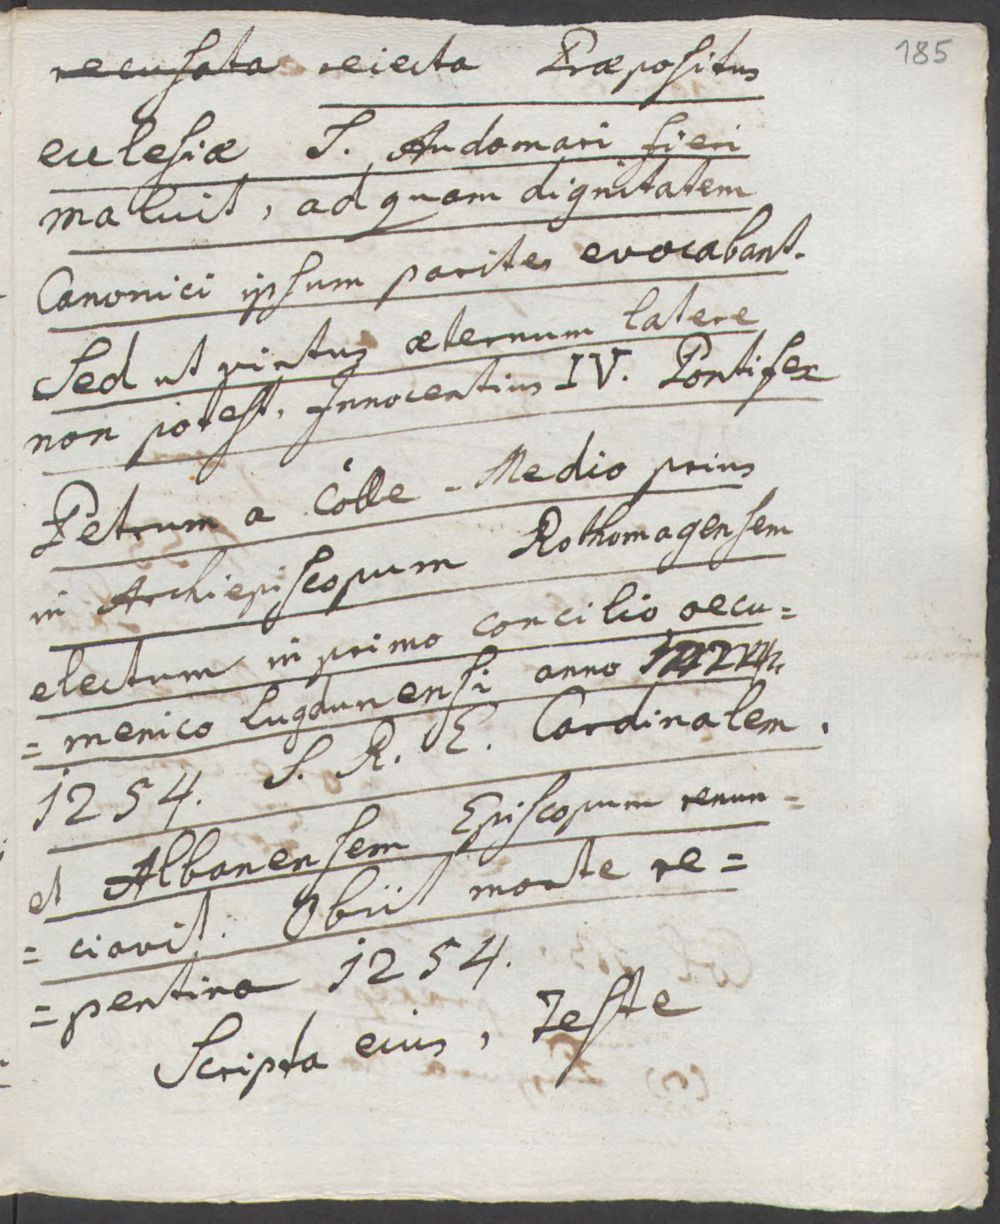 185
recusata reiecta Præpositus
ecclesiæ S. Audomari fieri
maluit, ad quam dignitatem
Canonici ipsum pariter evocabant.
Sed ut virtus æternum latere
non potest, Innocentius IV. Pontifex
Petrum a Colle-Medio prius
in Archiepiscopum Rothomagensem
electum in primo concilio oecu=
=menico Lugdunensi anno
1254. S. R. E. Cardinalem,
et Albanensem Episcopum renun=
=ciavit. Obiit morte re=
=pentina 1254.
Scripta eius, Teste